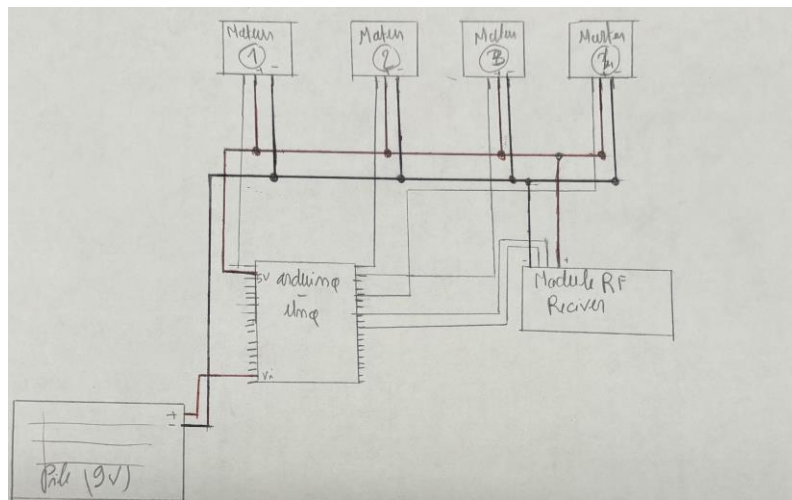 Moteur
1
+ -
Moteur
2
-
Moteur
3
+ -
Moteur
4
-
5V arduino
-
uno
Vi
- +
Module RF
Reciver
+
-
Pile (9V)